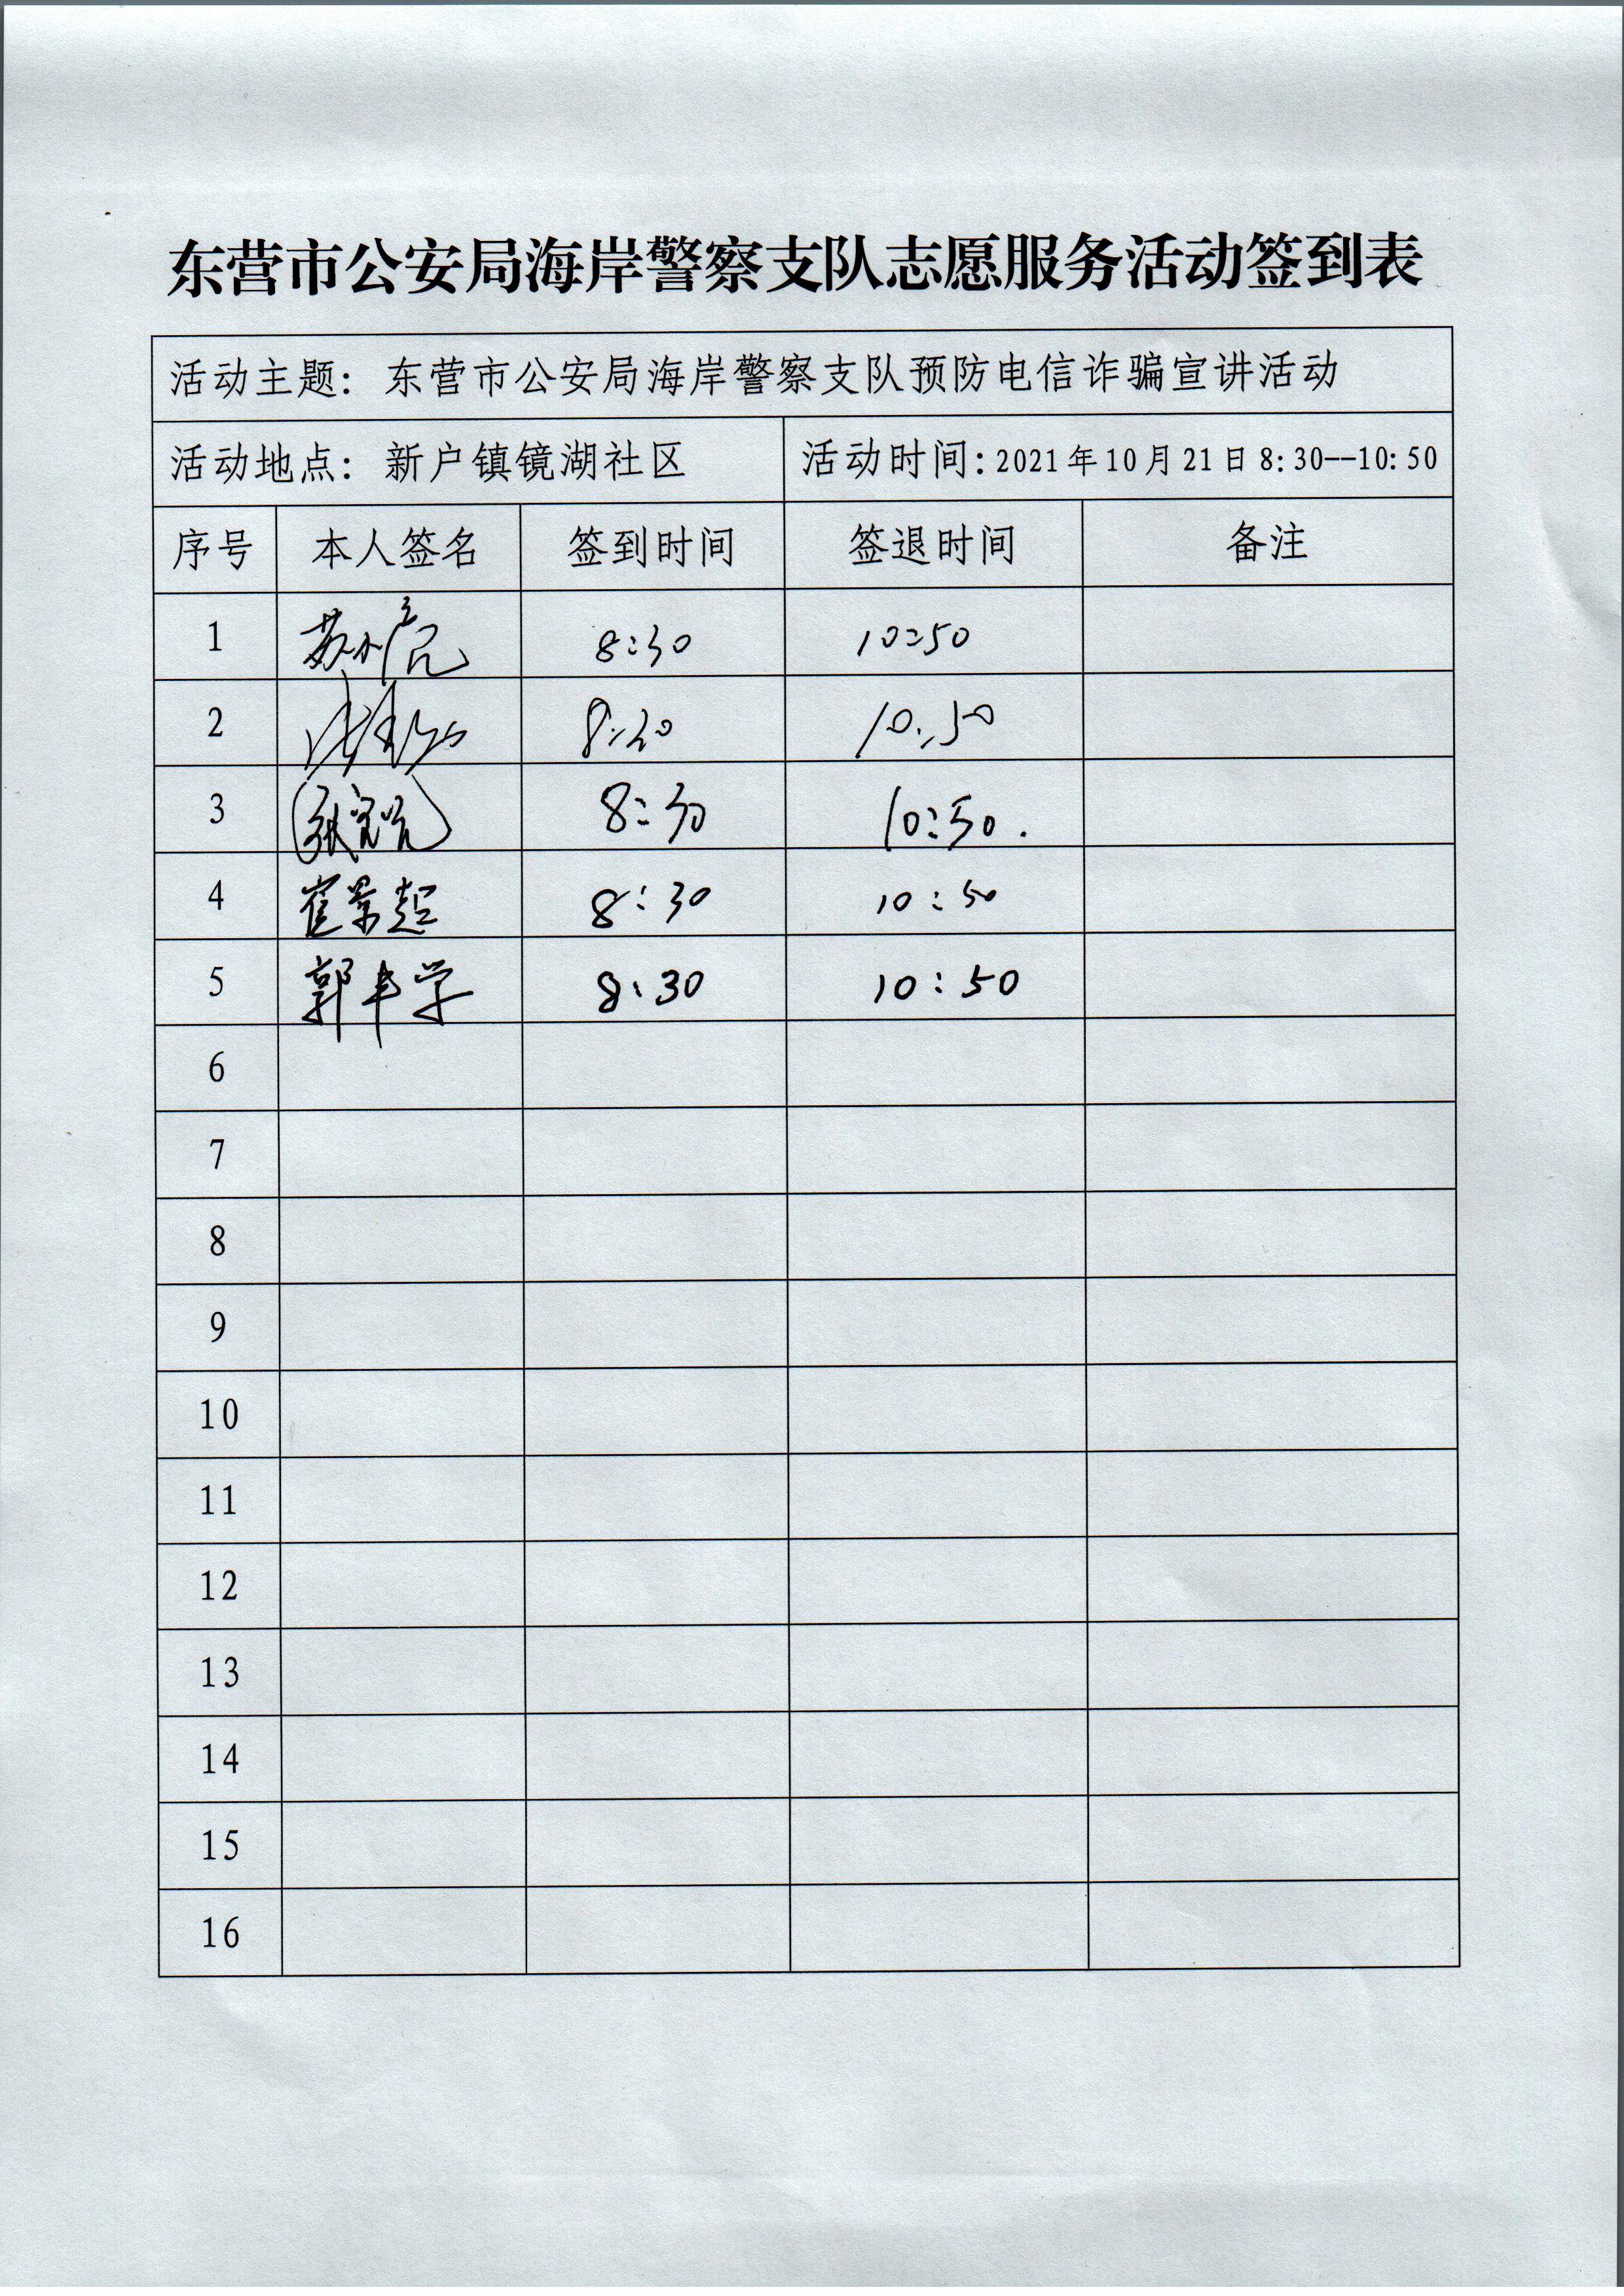 东营市公安局海岸警察支队志愿服务活动签到表
活动主题：东营市公安局海岸警察支队预防电信诈骗宣讲活动
活动地点：新户镇镜湖社区 活动时间：2021年10月21日8:30--10:50
序号 本人签名 签到时间 签退时间 备注
1 苏 8:30 10:50
2 8:30 10:50
3 张 8:30 10:50.
4 崔景超 8:30 10:50
5 郭丰学 8:30 10:50
6
7
8
9
10
11
12
13
14
15
16